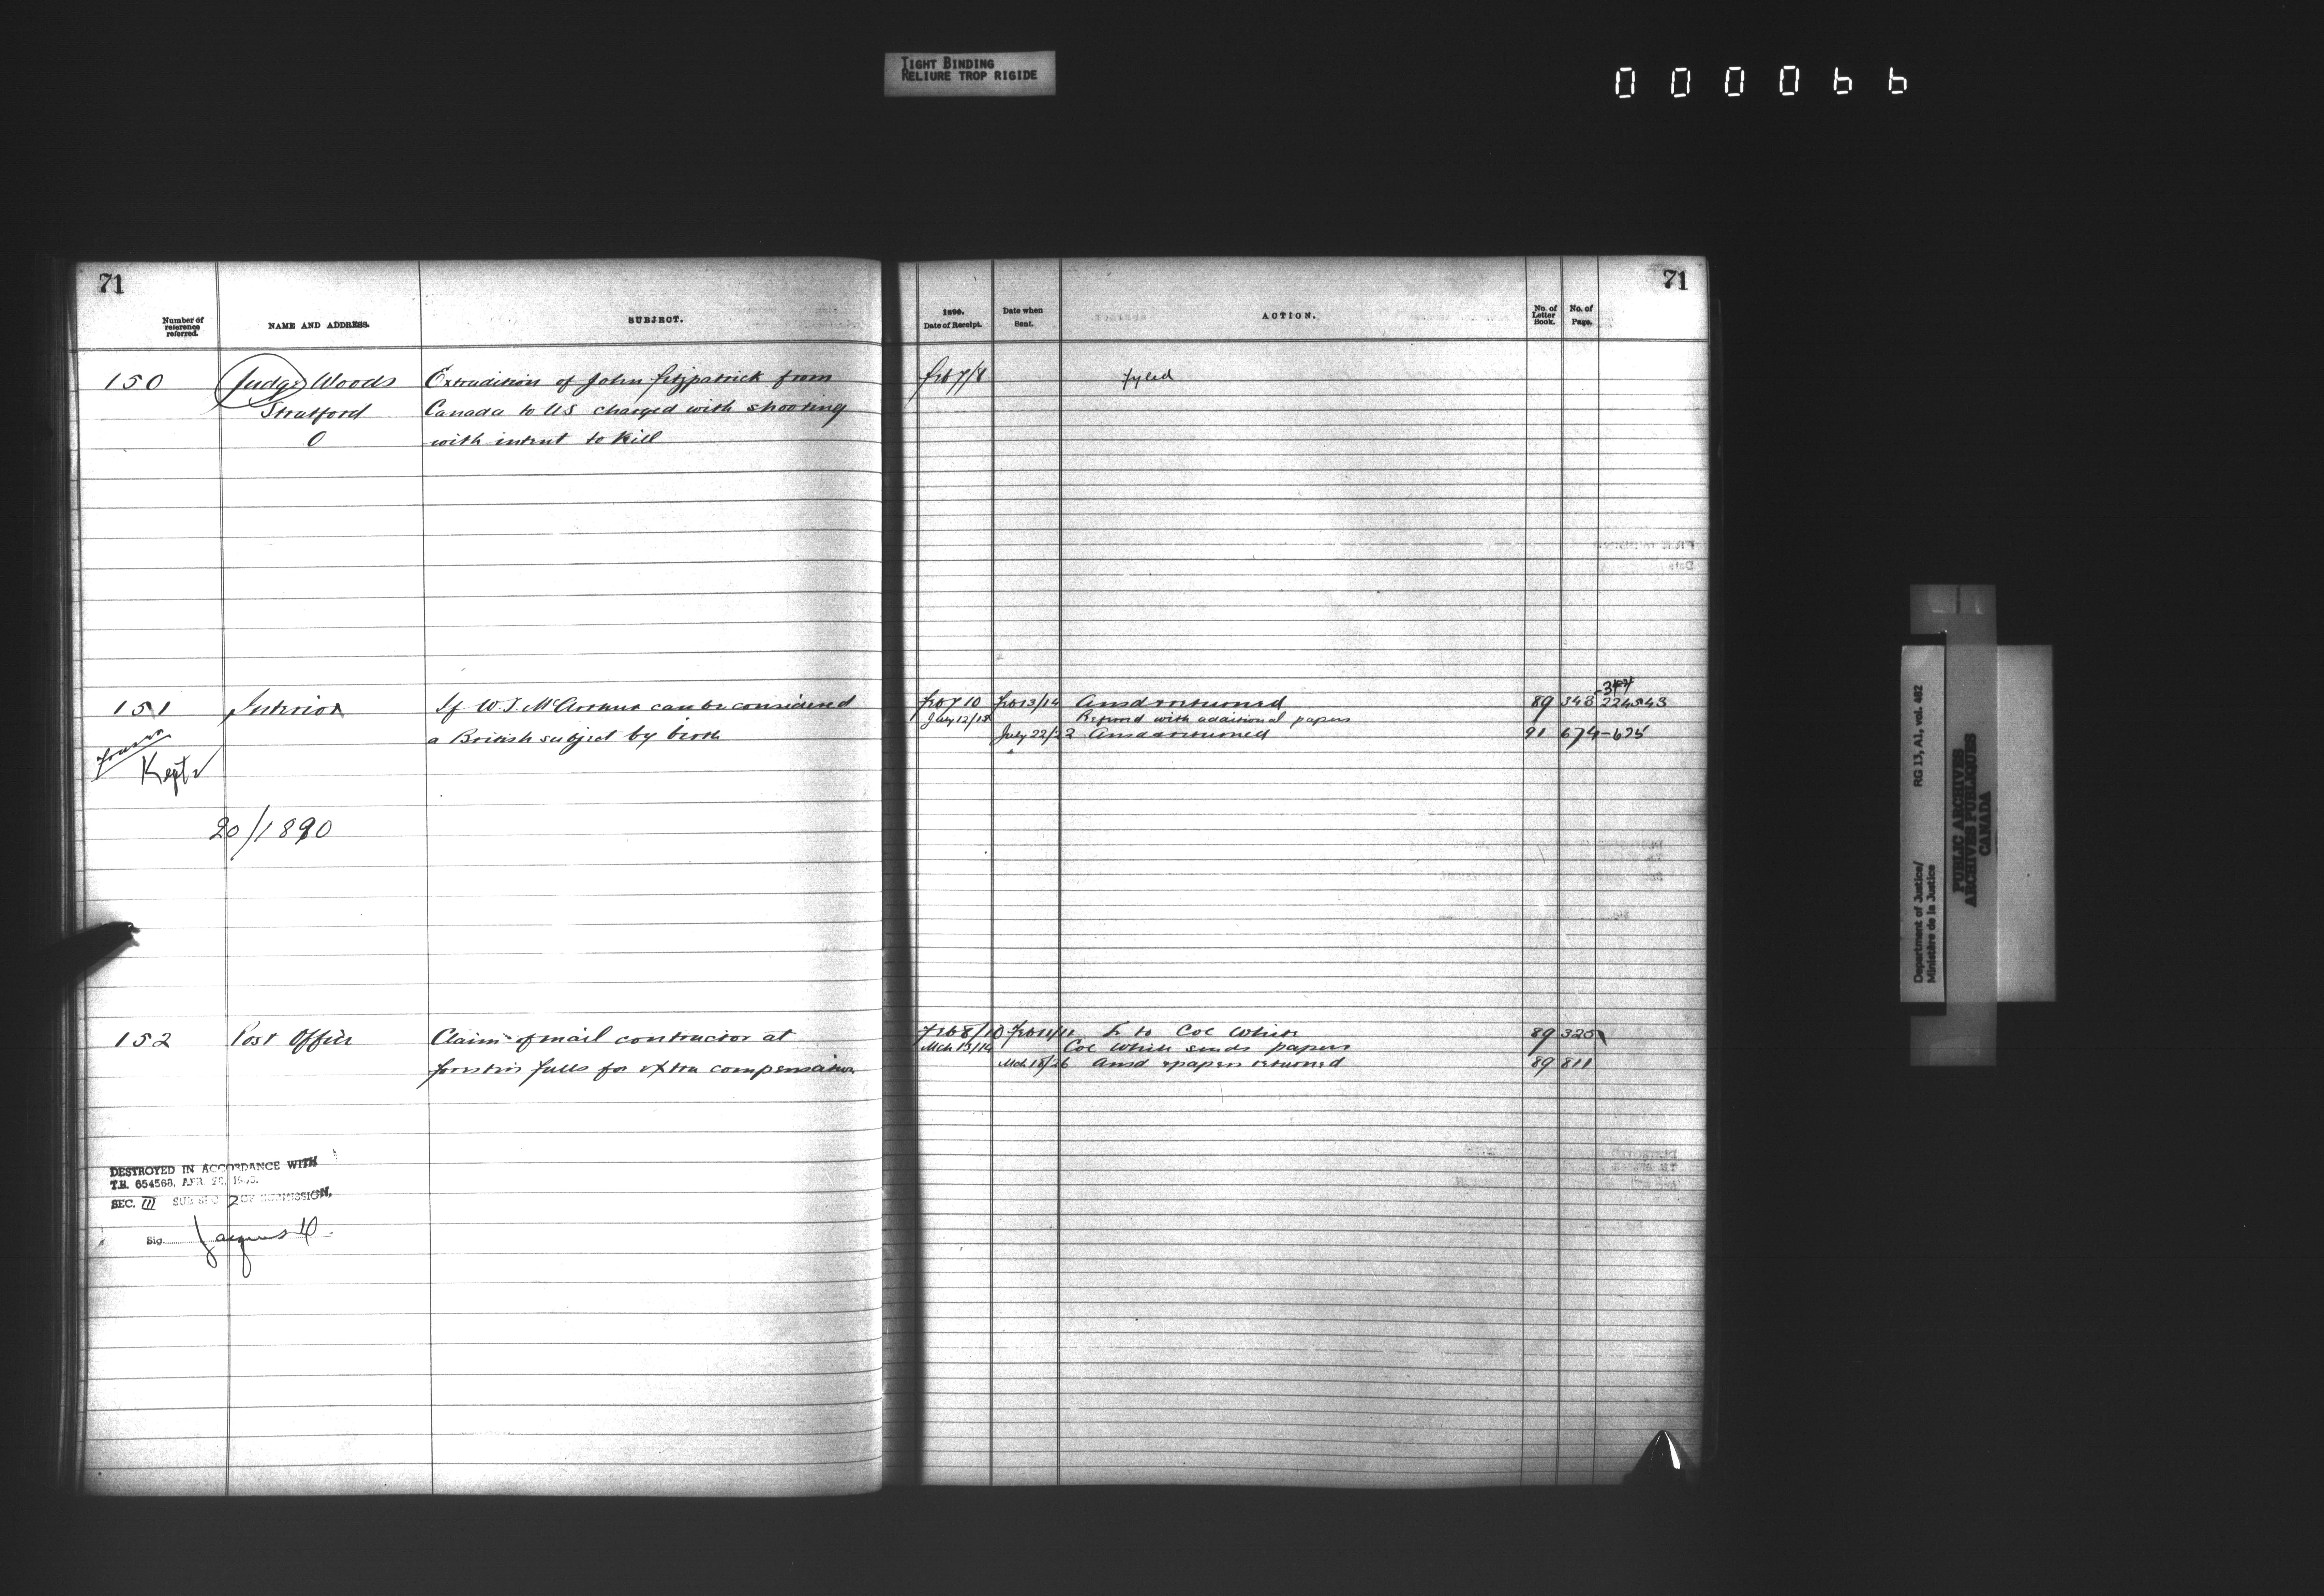 TIGHT BINDING
RELIURE TROP RIGIDE
000066
71
Number of reference referred.
NAME AND ADDRESS.
SUBJECT.
150
Judge Woods
Extradition of John Fitzpatrick from
Stratford
Canada to US charged with shooting
O
with intent to kill
151
Interior
If W J McArthur can be considered
a British subject by birth
Kept
20/1890
152
Post Office
Claim of mail contractor at
falls for extra compensation
DESTROYED IN ACCORDANCE WITH
T.B. 654568, APR.
SEC. III SUB SEC 2 OF SUBMISSION,
Sig
71
1890.
Date of Receipt.
Date when Sent.
ACTION.
No. of Letter Book.
No. of Page.
Feb 7/8
fyled
Feb 7 10
Feb 13/14
Ansd & returned
89
343
July 12/18
Referred with additional papers
July 22/22
Ansd & returned
91
674-675
Feb 8/10
Feb 11/11
L to Col White
89
325
Mch 13/14
Col White sends papers
Mch 18/26
Ansd & papers returned
89
811
Department of Justice/
Ministère de la Justice
RG 13, A1, vol. 482
PUBLIC ARCHIVES
ARCHIVES PUBLIQUES
CANADA